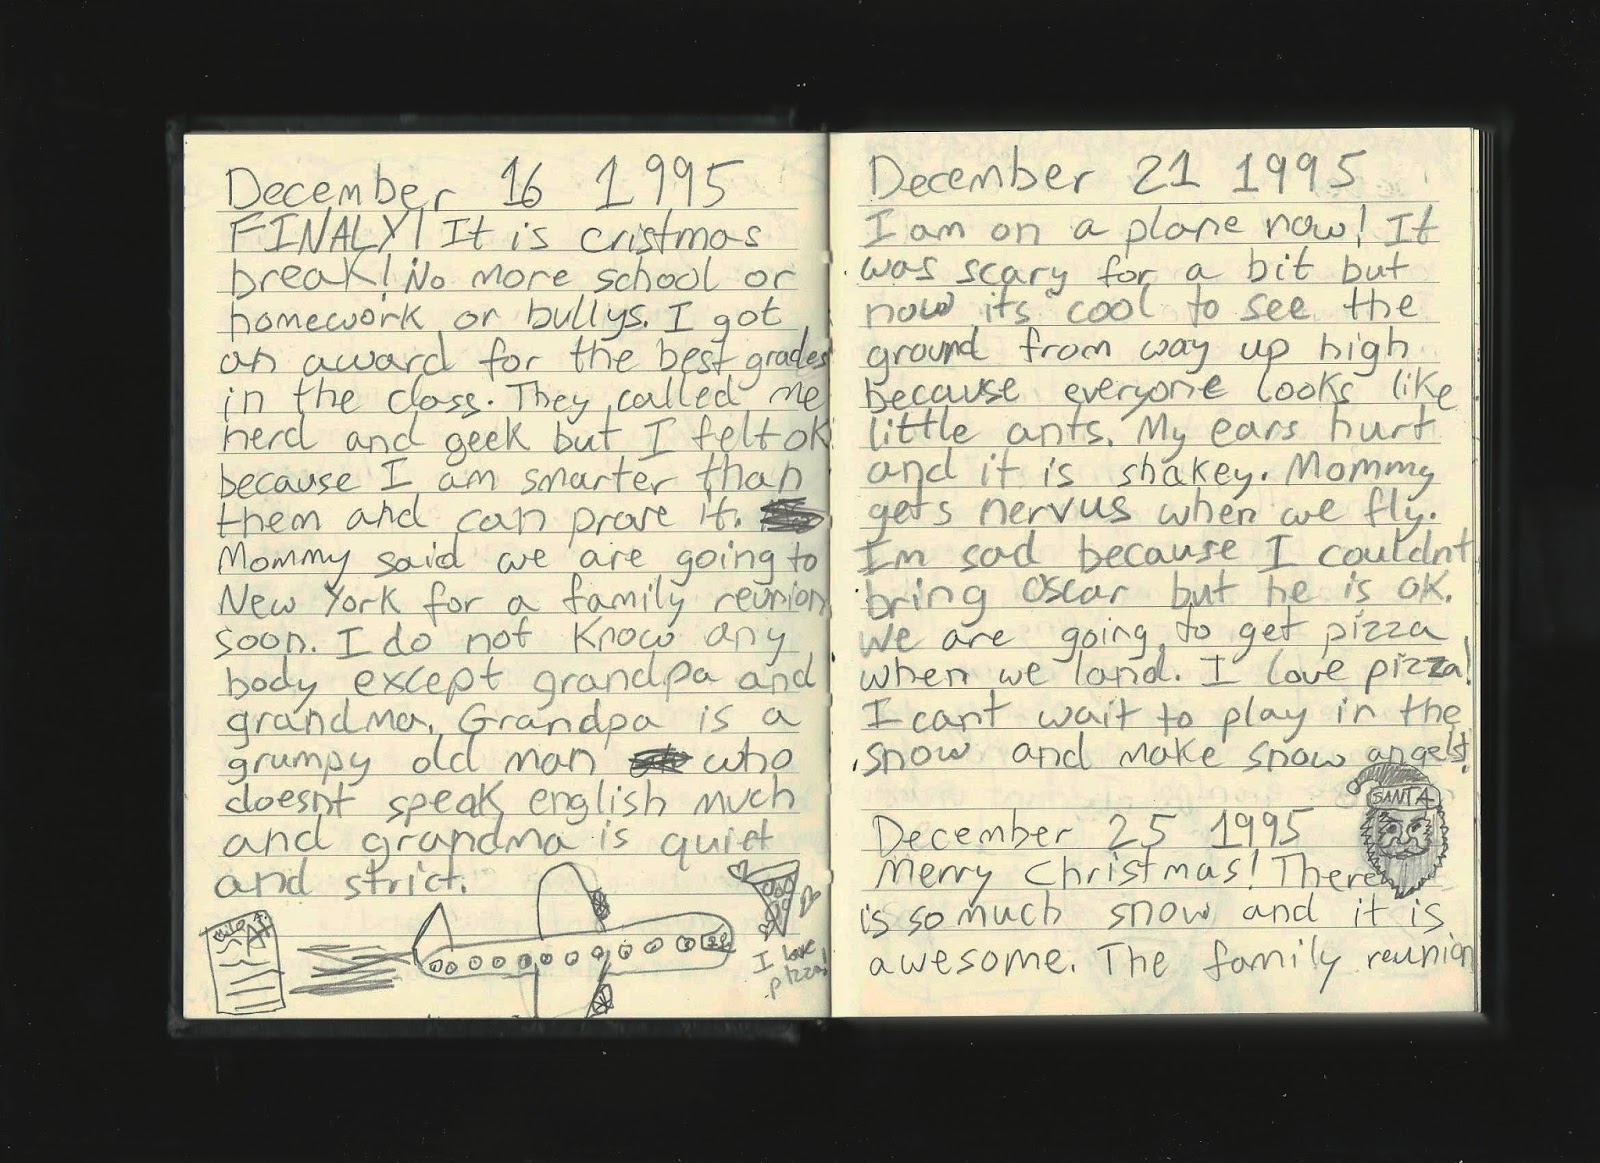 December 16 1995
FINALY! It is cristmas
break! No more school or
homework or bullys. I got
an award for the best grades
in the class. They called me
nerd and geek but I felt ok
because I am smarter than
them and can prove it.
Mommy said we are going to
New York for a family reunion
soon. I do not know any
body except grandpa and
grandma. Grandpa is a
grumpy old man who
doesnt speak english much
and grandma is quiet
and strict.
A+
I love
pizza!
December 21 1995
I am on a plane now! It
was scary for a bit but
now its cool to see the
ground from way up high
because everyone looks like
little ants. My ears hurt
and it is shakey. Mommy
gets nervus when we fly.
Im sad because I couldnt
bring Oscar but he is ok.
We are going to get pizza
when we land. I love pizza!
I cant wait to play in the
snow and make snow angels!
SANTA
December 25 1995
Merry Christmas! There
is so much snow and it is
awesome. The family reunion